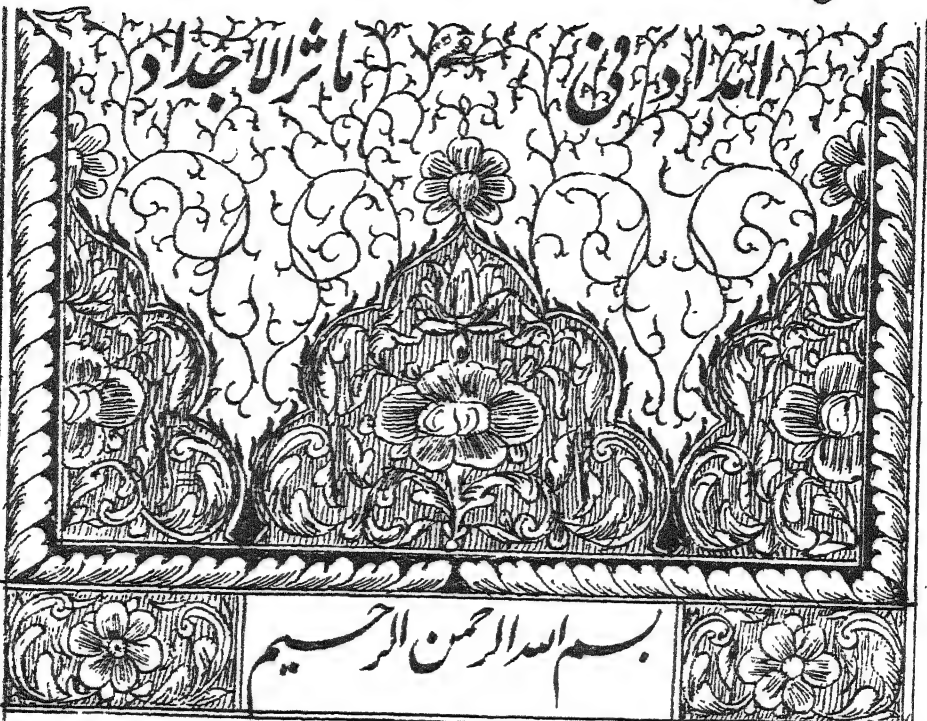 امداد فی مآثر الاجداد
بسم الله الرحمن الرحیم